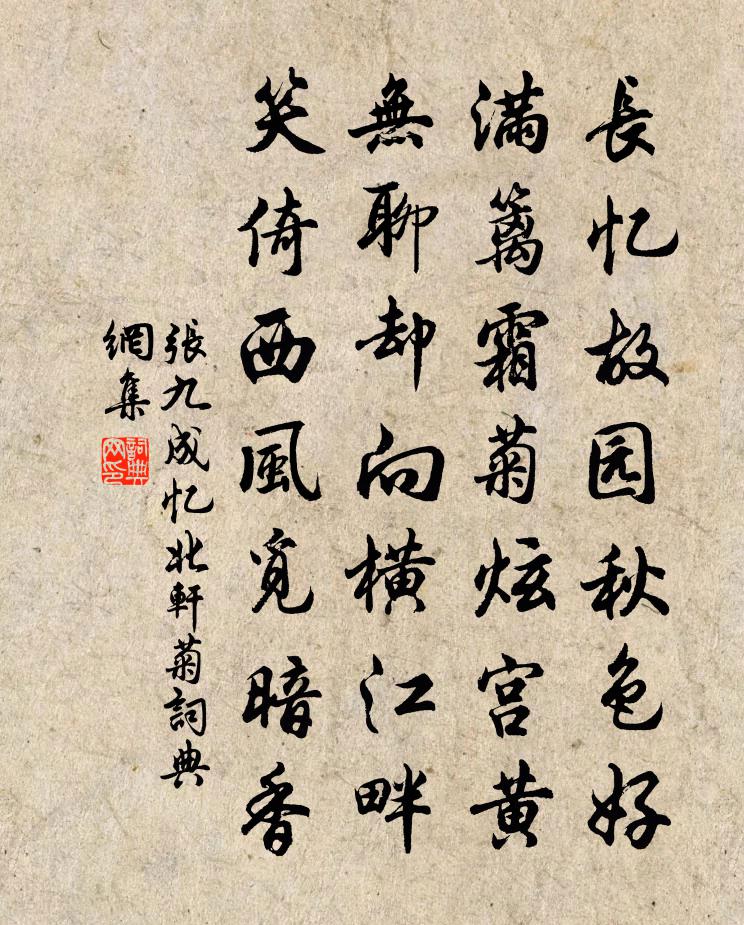 長忆故园秋色好
满籬霜菊炫宫黄
無聊却向横江畔
笑倚西風觅暗香
張九成忆北軒菊詞典
網集
詞典网印